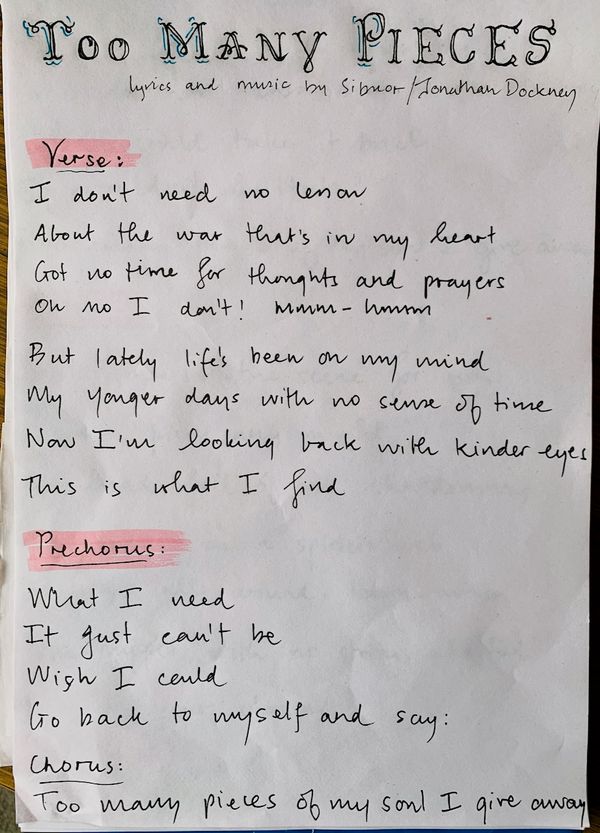 TOO MANY PIECES
lyrics and music by Sibuor/Jonathan Dockney
Verse:
I don't need no lesson
About the war that's in my heart
Got no time for thoughts and prayers
Oh no I don't! mmm-hmmm
But lately life's been on my mind
My yonger days with no sense of time
Now I'm looking back with kinder eyes
This is what I find
Prechorus:
What I need
It just can't be
Wish I could
Go back to myself and say:
Chorus:
Too many pieces of my soul I give away